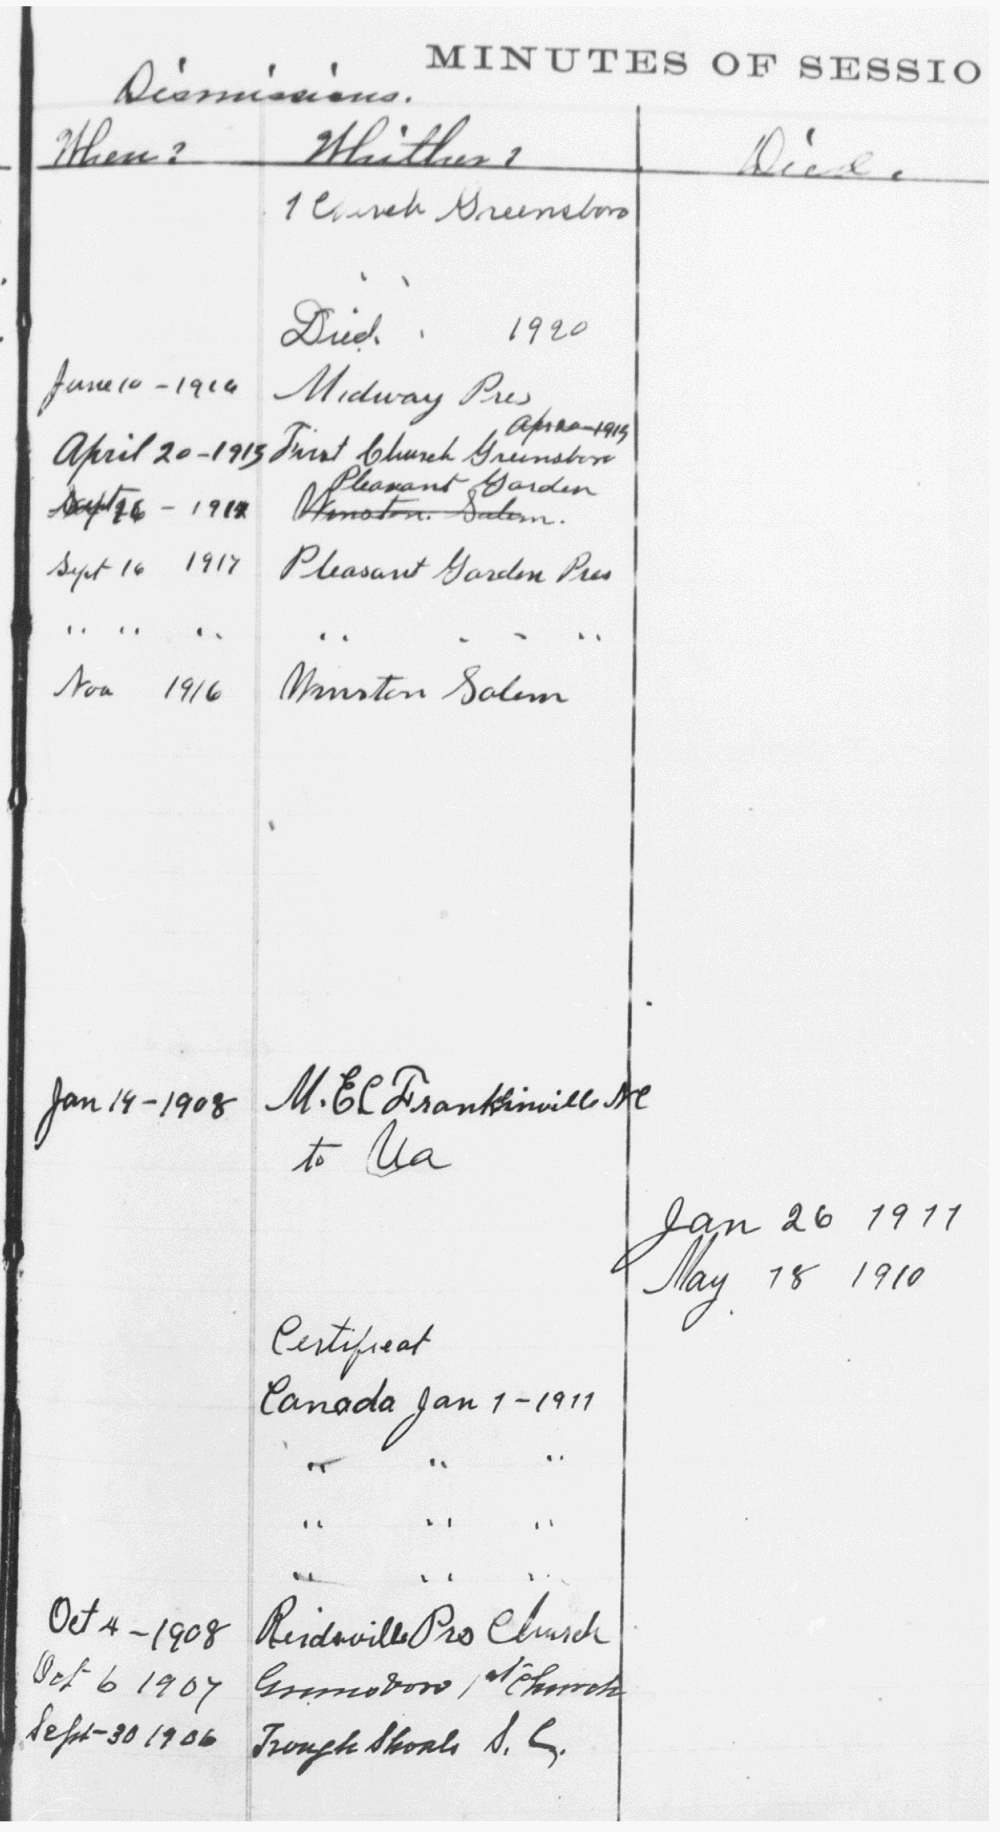 MINUTES OF SESSIO
Dismissions.
When? Whither? Died.
1 Church Greensboro
" "
Died. 1920
June 10 - 1916 Midway Pres
Apr 20 - 1915
April 20 - 1915 First Church Greensboro
Pleasant Garden
Sept 16 - 1917 Winston. Salem.
Sept 16 1917 Pleasant Garden Pres
" " " " " " "
Nov 1916 Winston Salem
Jan 14 - 1908 M. E C Franklinville NC
to Va
Jan 26 1911
May 18 1910
Certificat
Canada Jan 1 - 1911
" " "
" " "
" " "
Oct 4 - 1908 Reidsville Pres Church
Oct 6 1907 Greensboro 1st Church
Sept - 30 1906 Trough Shoals S. C.